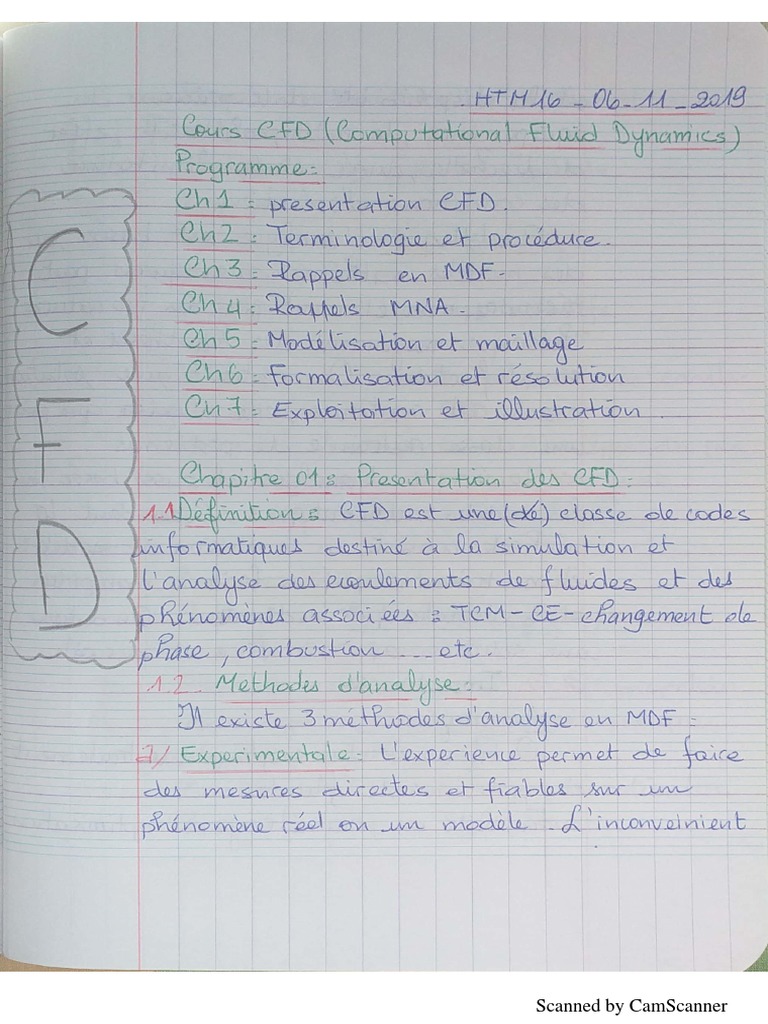 HTM16 - 06-11-2019
Cours CFD (Computational Fluid Dynamics)
Programme:
Ch1: presentation CFD.
Ch2: Terminologie et procédure.
Ch3: Rappels en MDF-
Ch4: Rappels MNA.
Ch5: Modélisation et maillage
Ch6: formalisation et résolution
Ch7: Exploitation et illustration.
CFD
Chapitre 01: Presentation des CFD:
1.1 Définition: CFD est une (dé) classe de codes
informatiques destiné à la simulation et
l'analyse des ecoulements de fluides et des
phénomènes associées: TCM-CE-changement de
phase, combustion ... etc.
1.2. Methodes d'analyse:
Il existe 3 méthodes d'analyse en MDF:
1/ Experimentale: L'experience permet de faire
des mesures directes et fiables sur un
phénomène réel on un modèle. L'inconveinient
Scanned by CamScanner